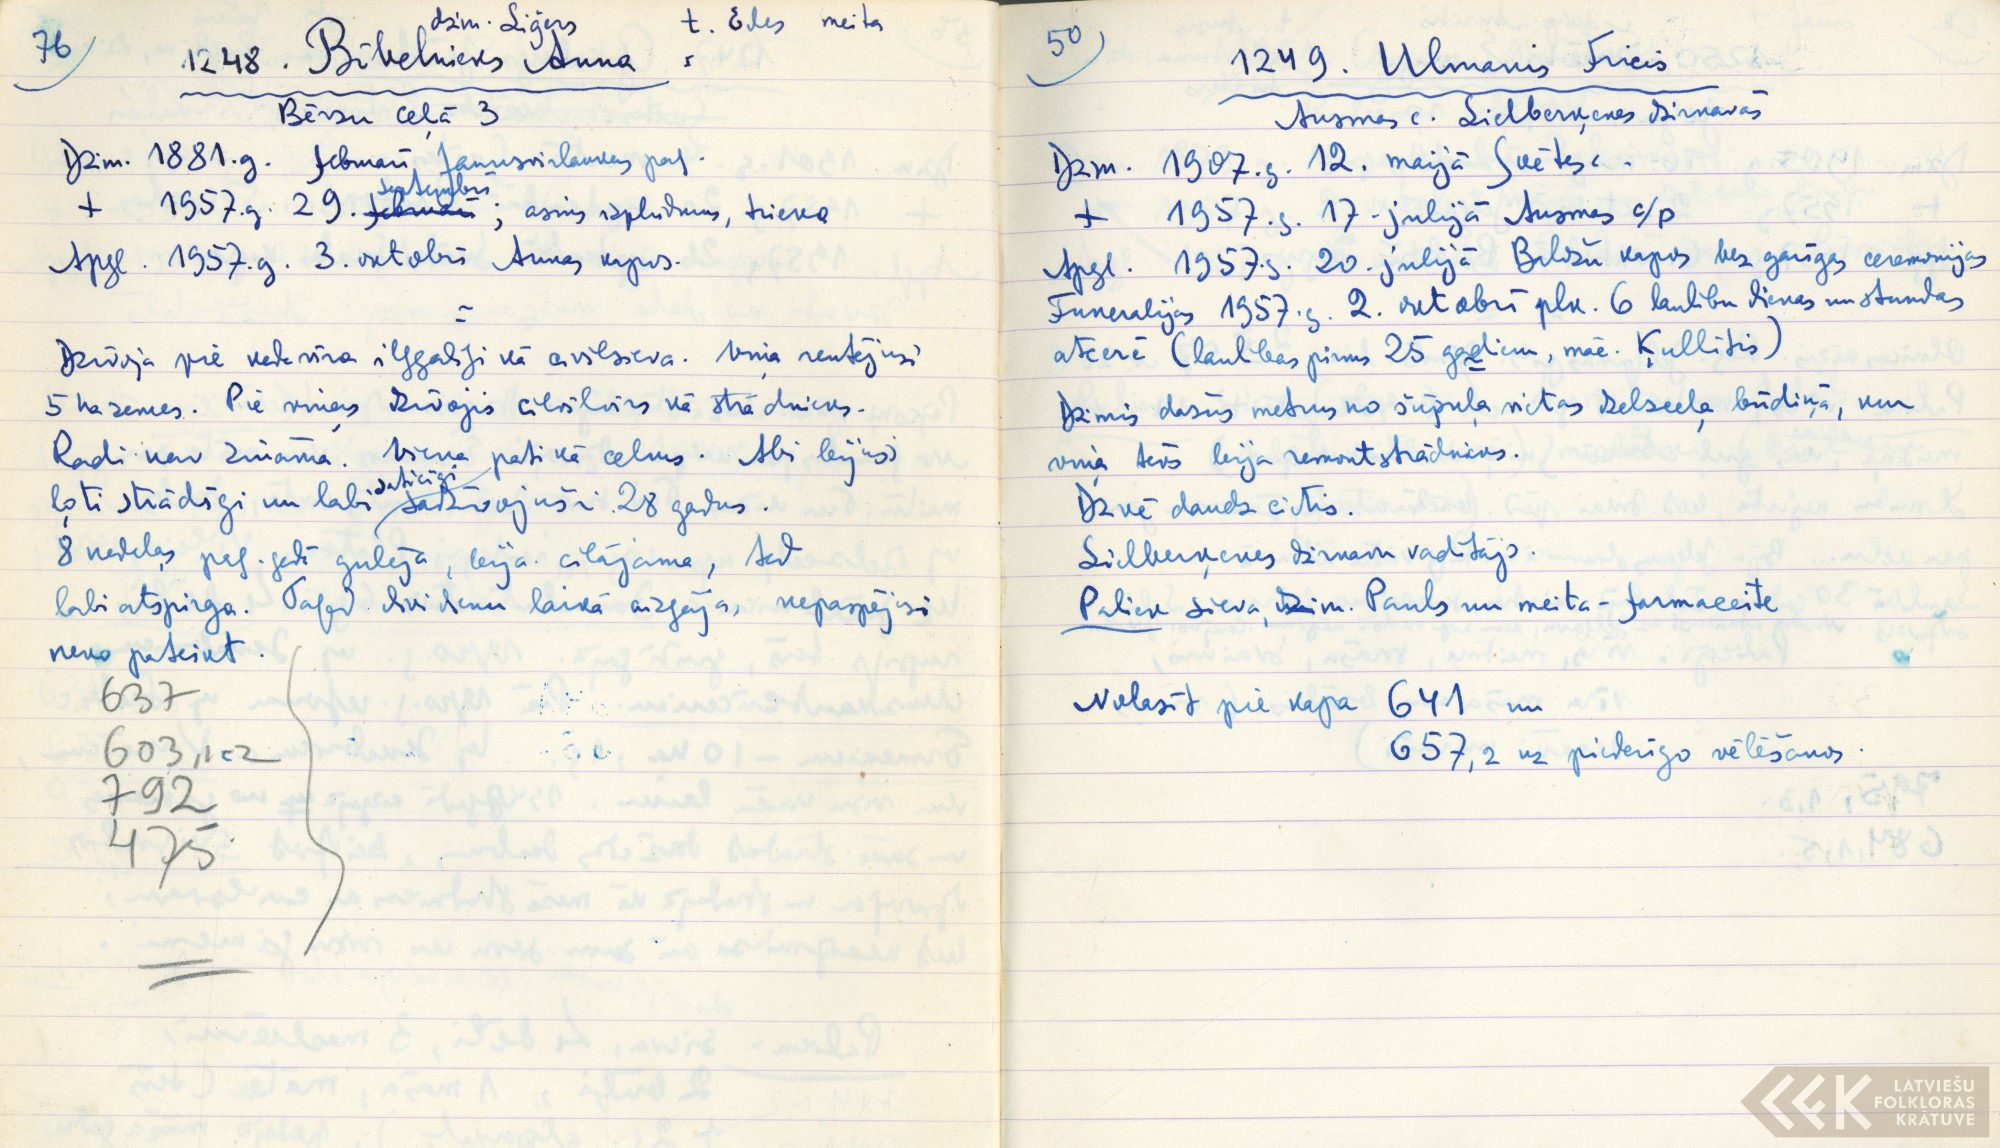 76
dzim. Liģers t. Edes meita
1248. Bikelnieks Anna
Bērzu ceļā 3
Dzim. 1881.g. februārī Jaunsvirlaukas pag.
septembrī
+ 1957.g. 29. februārī; asins izplūdums, trieka
Apgl. 1957.g. 3. oktobrī Annas kapos.
=
Dzīvoja pie vīra ilggadīgi kā civilsieva. Viņa rentējusi
5 ha zemes. Pie viņas dzīvojis cilvēks kā strādnieks.
Radi nav zināma. Viena pati kā celms. Abi bijuši
saticīgi
ļoti strādīgi un labi sadzīvojuši 28 gadus.
8 nedēļas pag. gadā gulēja, bija cilājama, tad
labi atspirga. Tagad divi dienu laikā aizgāja, nepaspējusi
neko pateikt.
637
603,1c2
792
475
50
1249. Ulmanis Fricis
Ausmas c. Lielberķenes dzirnavās
Dzim. 1907.g. 12. maijā Svētes c.
+ 1957.g. 17. jūlijā Ausmas c/p
Apgl. 1957.g. 20. jūlijā Biližu kapos bez garīgas ceremonijas
Funerālijas 1957.g. 2. oktobrī plk. 6 laulību dienas un stundas
atcerē (laulības pirms 25 gadiem, māc. Ķullītis)
Dzimis dažus metrus no šūpuļa vietas dzelzceļa būdiņā, kur
viņa tēvs bija remontstrādnieks.
Dzīvē daudz cietis.
Lielberķenes dzirnavu vadītājs.
Paliek sieva, dzim. Pauls un meita - farmaceite
Nolasīt pie kapa 641 un
657,2 uz piederīgo vēlēšanos.
LATVIEŠU
FOLKLORAS
KRĀTUVE